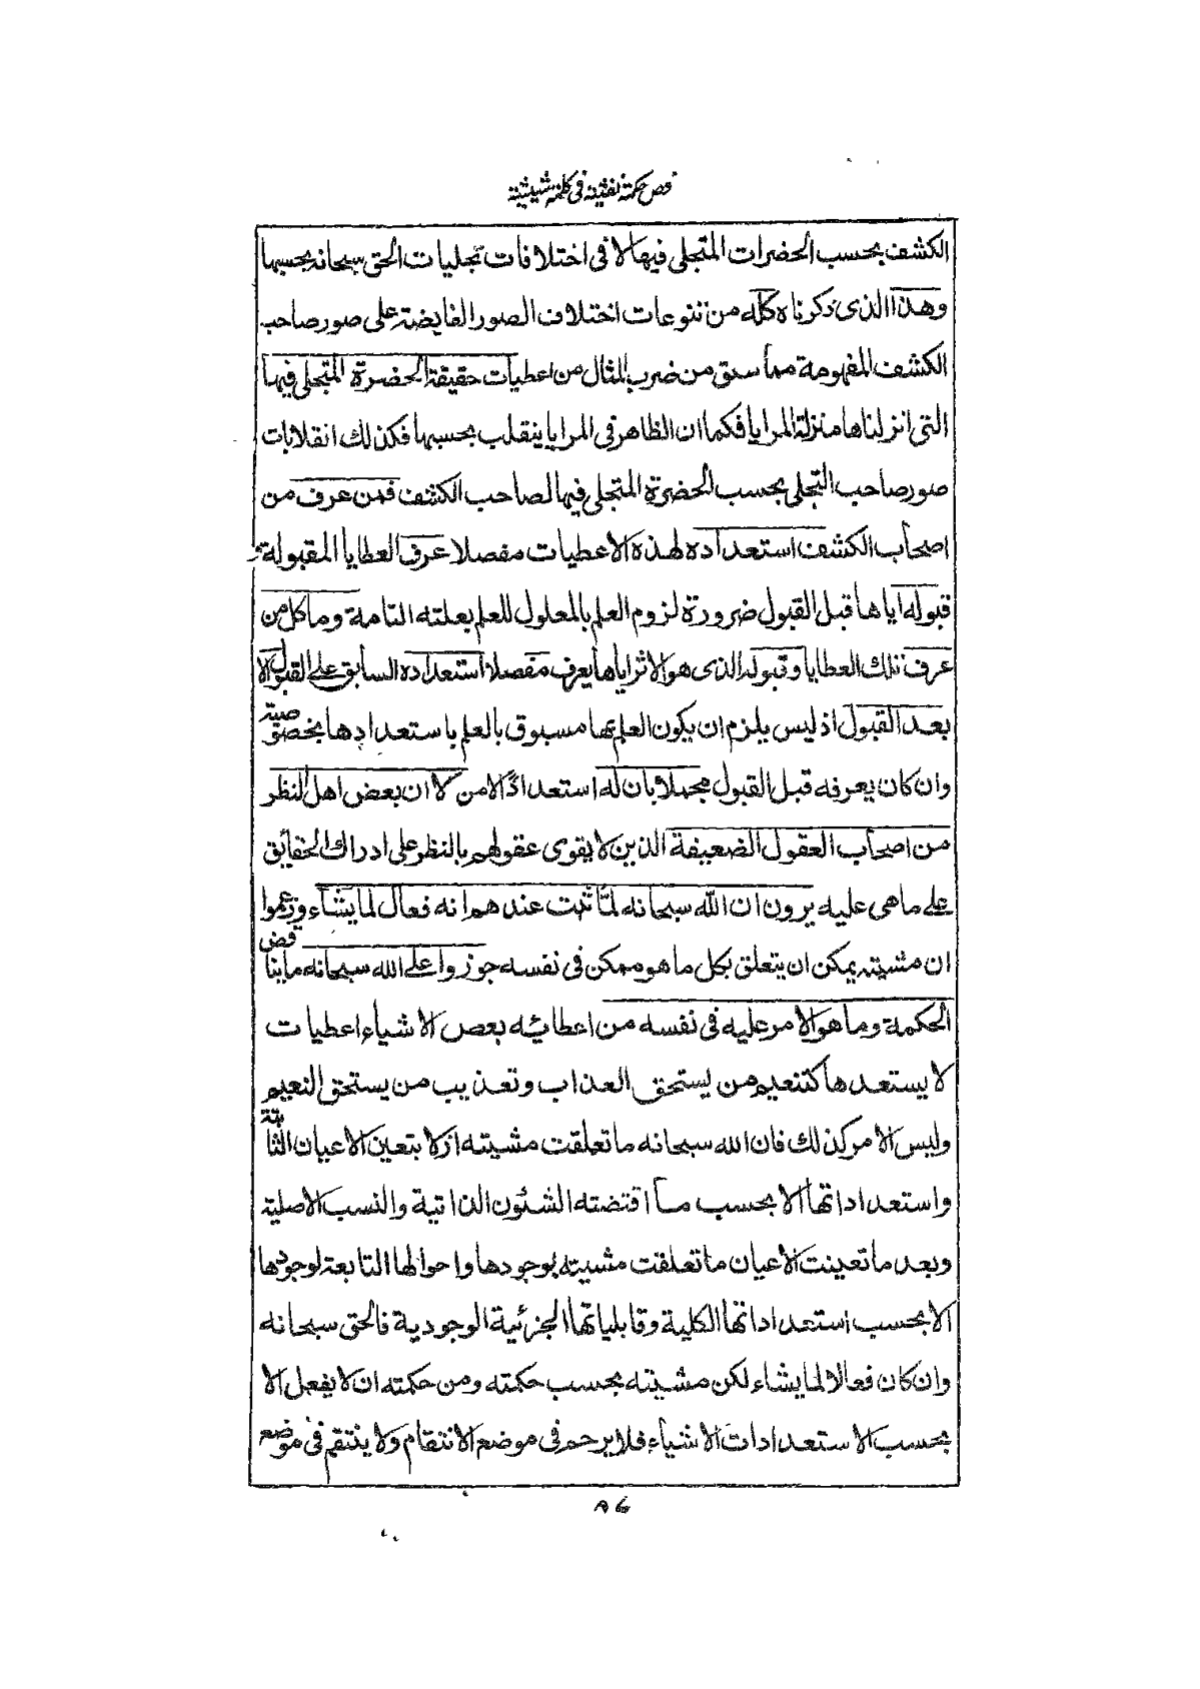 فص حكمة نفثية فى كلمة شيثية
الكشف بحسب الحضرات المتجلى فيها لا فى اختلافات تجليات الحق سبحانه بحسبها
وهذا الذى ذكرناه كله من تنوعات اختلاف الصور الفايضة على صور صاحب
الكشف المفهومة مما سبق من ضرب المثال من اعطيات حقيقة الحضرة المتجلى فيها
التى انزلناها منزلة المرايا فكما ان الظاهر فى المرايا ينقلب بحسبها فكذلك انقلابات
صور صاحب التجلى بحسب الحضرة المتجلى فيها لصاحب الكشف فمن عرف من
اصحاب الكشف استعداده لهذه الاعطيات مفصلا عرف العطايا المقبولة
قبوله اياها قبل القبول ضرورة لزوم العلم بالمعلول للعلم بعلته التامة وما كل من
عرف تلك العطايا وقبوله الذى هو الاثر اياها يعرف مفصلا استعداده السابق على القبول الا
بعد القبول اذ ليس يلزم ان يكون العلم بها مسبوق بالعلم باستعدادها بخصوصيته
وان كان يعرفه قبل القبول مجملا بان له استعدادًا لامن لا ان بعض اهل النظر
من اصحاب العقول الضعيفة الذين لا يقوى عقولهم بالنظر على ادراك الحقائق
على ما هى عليه يرون ان الله سبحانه لمّا ثبت عندهم انه فعال لما يشاء وزعموا
ان مشيته يمكن ان يتعلق بكل ما هو ممكن فى نفسه جوزوا على الله سبحانه ما يناقض
الحكمة وما هو الامر عليه فى نفسه من اعطائه بعض الاشياء اعطيات
لا يستعدها كتنعيم من يستحق العذاب وتعذيب من يستحق النعيم
وليس الامر كذلك فان الله سبحانه ما تعلقت مشيته ازلا بتعين الاعيان الثابتة
واستعداداتها الا بحسب ما اقتضته الشئون الذاتية والنسب الاصلية
وبعد ما تعينت الاعيان ما تعلقت مشيته بوجودها واحوالها التابعة لوجودها
الا بحسب استعداداتها الكلية وقابلياتها الجزئية الوجودية فالحق سبحانه
وان كان فعالا لما يشاء لكن مشيته بحسب حكمته ومن حكمته ان لا يفعل الا
بحسب الاستعدادات الاشياء فلا يرحم فى موضع الانتقام ولا ينتقم فى موضع
٨٦